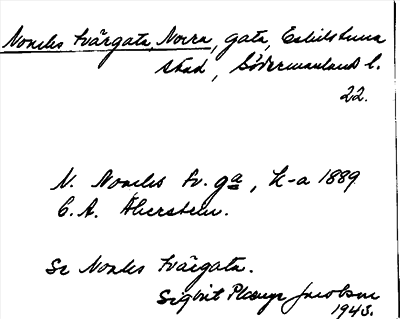 Nonnens tvärgata, Norra, gata, Eskilstuna
stad, Södermanlands l.
22.
N. Nonnens tv. ga, K-a 1889
C. A. Åberstein.
Se Nonnens tvärgata.
Sigbrit Plænge Jacobson
1943.